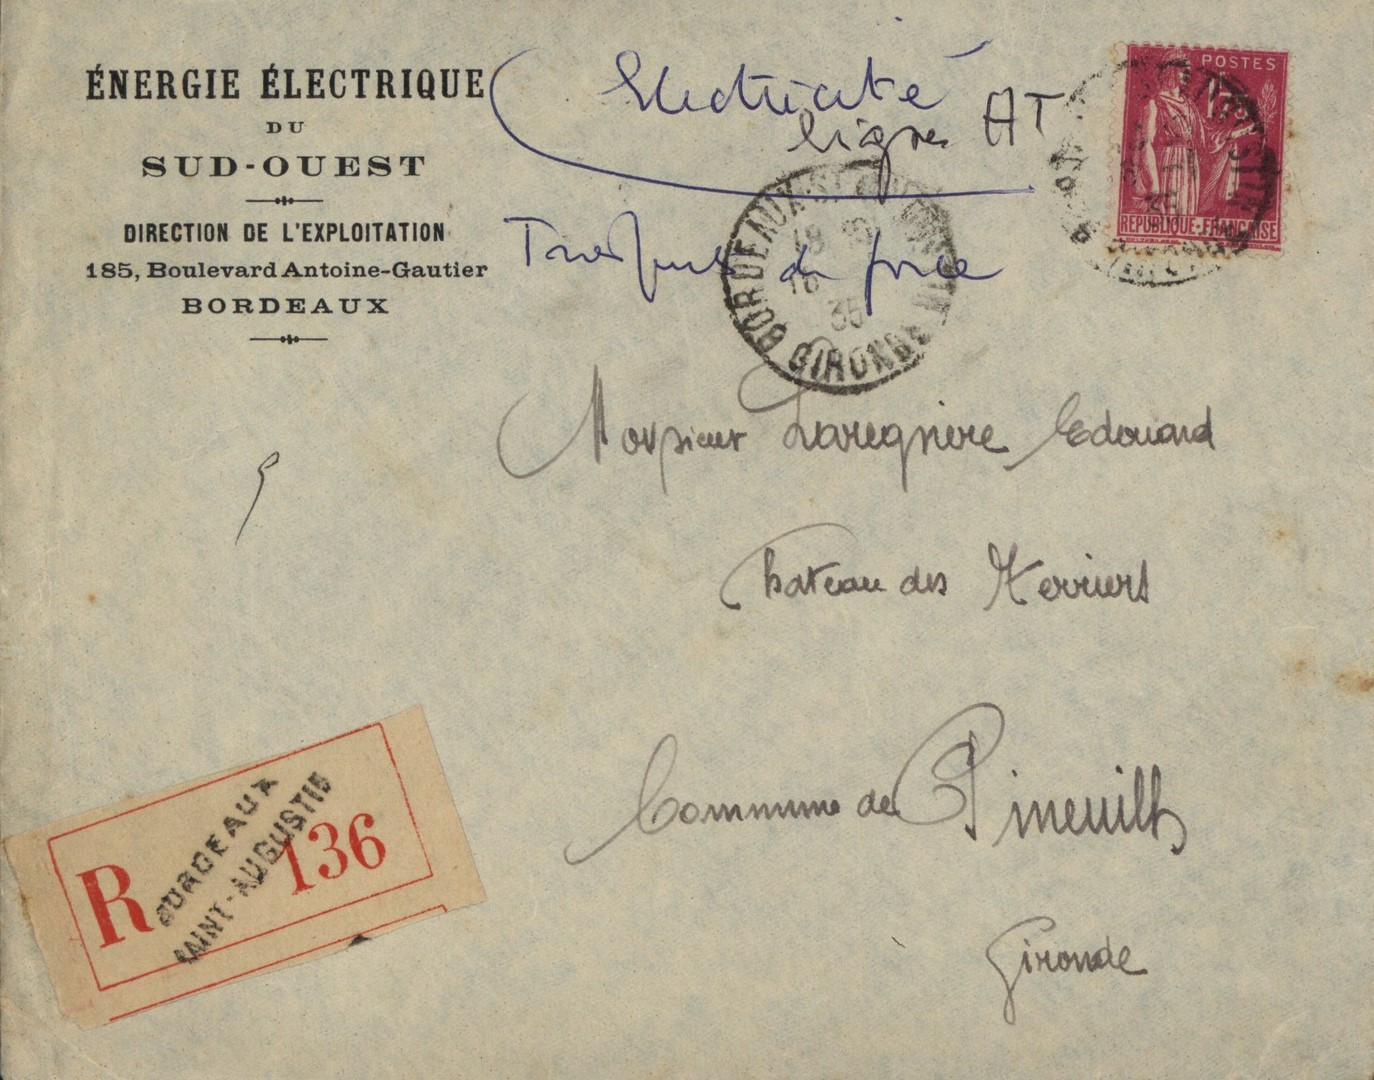 ÉNERGIE ÉLECTRIQUE
DU
SUD-OUEST
DIRECTION DE L'EXPLOITATION
185, Boulevard Antoine-Gautier
BORDEAUX
Electricité
lignes HT
Transport de force
POSTES
RÉPUBLIQUE-FRANÇAISE
BORDEAUX-St AUGUSTIN
18
16
35
GIRONDE
Monsieur Laregnere Edouard
Chateau des Merriers
Commune de Pineuilh
Gironde
R
BORDEAUX
SAINT-AUGUSTIN
136